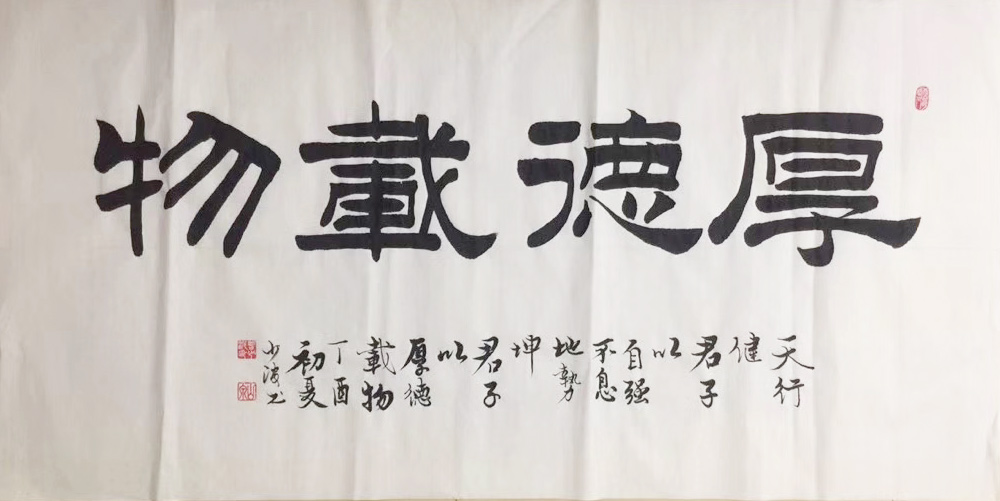 厚德載物
天行
健
君子
以
自强
不息
地勢
坤
君子
以
厚德
載物
丁酉
初夏
少波书